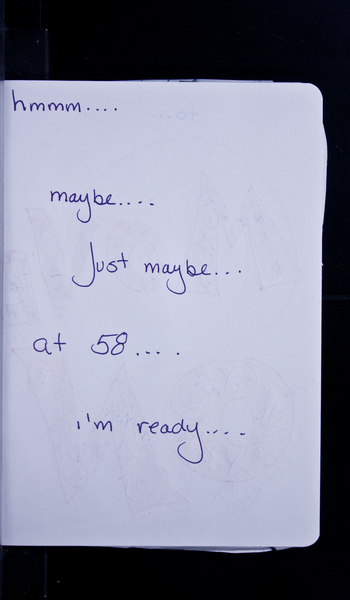 hmmm....
maybe....
Just maybe...
at 58....
i'm ready....